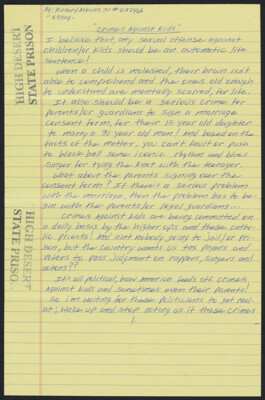 By; Richard
- Essay -
"Crimes Against Kids"
I believe that any sexual offense against
children/or kids should be an automatic life
sentence!
When a child is molested, their brain isn't
able to comprehend and the ones old enough
to understand are mentally scarred, for life.
It also should be a serious crime for
parents/or guardians to sign a marriage
consent form, for their 15-year old daughter
to marry a 31 year old man! And based on the
facts of the matter, you can't favor or push
to black ball some iconic rhythm and blues
singer for tying the knot with the teenager.
What about the parents signing over the
consent form? If there's a serious problem
with the marriage, then the problem has to be-
gin with the parents/or legal guardian...
Crimes against kids are being committed on
a daily basis by the higher ups and these catho-
lic priests! And aint nobody going to jail/or Pri-
son, but the country wants us tax payers and
voters to pass judgment on rappers, singers and
actors??
It's all political, how America feeds off crimes
against kids and sometimes even their parents!
So, I'm waiting for these politicians to get real-
wake up and stop acting as if these crimes
HIGH DESERT
STATE PRISON
HIGH DESERT
STATE PRISO